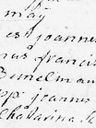 may
es joannes
rus francis
Bunelman
pp joannes
Chatarina